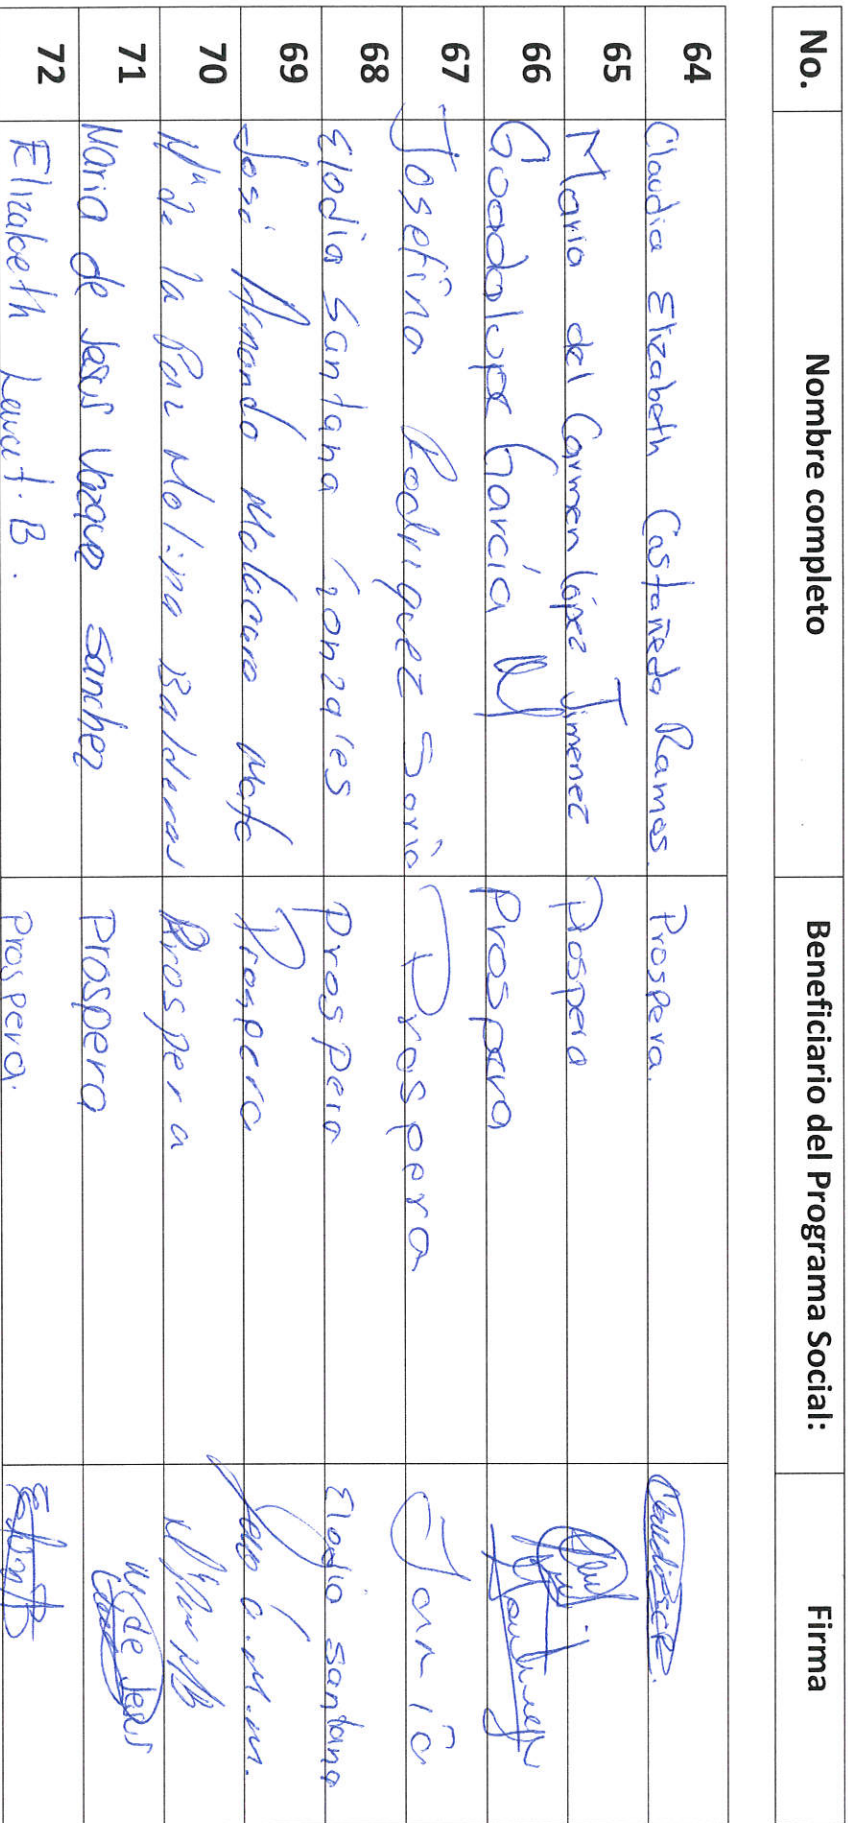 No. Nombre completo Beneficiario del Programa Social: Firma
64 Claudia Elizabeth Castañeda Ramos. Prospera.
65 Maria del Carmen López Jimenez Prospera
66 Guadalupe García Prospera
67 Josefina Rodriguez Soria Prospera
68 Elodia Santana Gonzales Prospera Elodia Santana
69 José Prospera
70 Mª de la Paz Molina Balderas Prospera
71 Maria de Jesus Vazquez Sanchez Prospera M. de Jesus
72 Elizabeth B. Prospera.